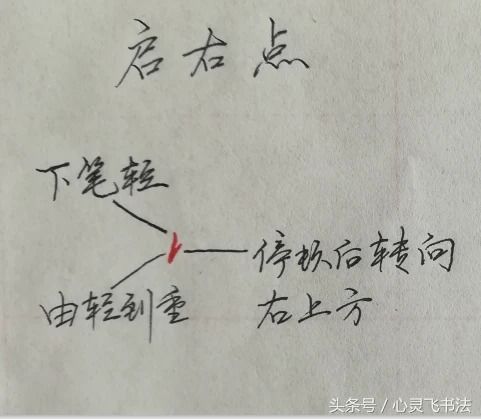 启右点
下笔轻
停顿后转向
右上方
由轻到重
头条号／心灵飞书法